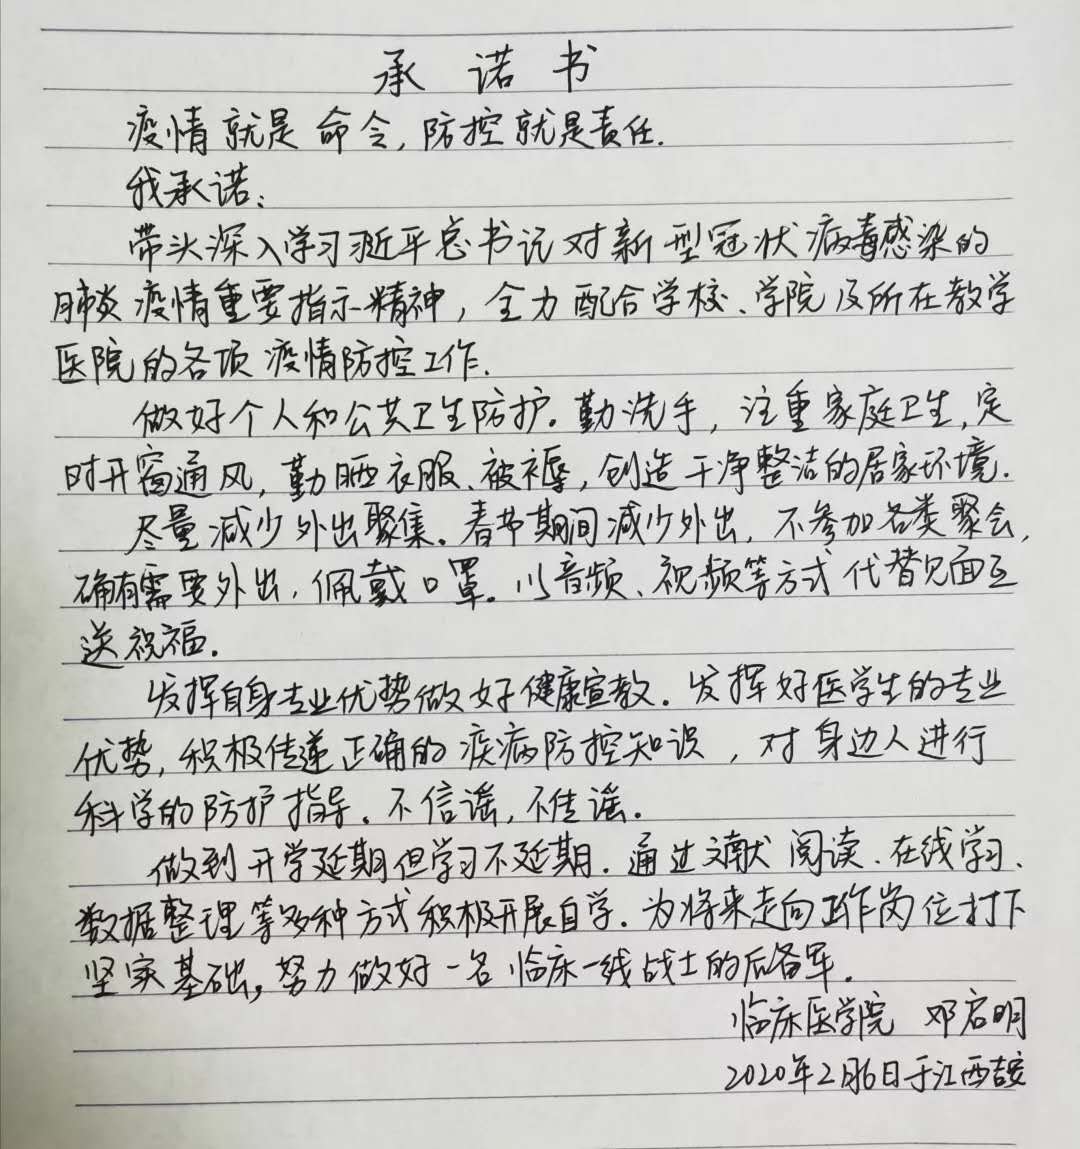 承诺书
疫情就是命令,防控就是责任.
我承诺:
带头深入学习习近平总书记对新型冠状病毒感染的
肺炎疫情重要指示精神,全力配合学校、学院及所在教学
医院的各项疫情防控工作.
做好个人和公共卫生防护。勤洗手,注重家庭卫生,定
时开窗通风,勤晒衣服、被褥,创造干净整洁的居家环境.
尽量减少外出聚集。春节期间减少外出,不参加各类聚会,
确有需要外出,佩戴口罩。以音频、视频等方式代替见面互
送祝福。
发挥自身专业优势做好健康宣教.发挥好医学生的专业
优势,积极传递正确的疾病防控知识,对身边人进行
科学的防护指导。不信谣,不传谣。
做到开学延期但学习不延期.通过文献阅读、在线学习、
数据整理等多种方式积极开展自学.为将来走向工作岗位打下
坚实基础,努力做好一名临床一线战士的后备军.
临床医学院 邓启明
2020年2月6日于江西吉安